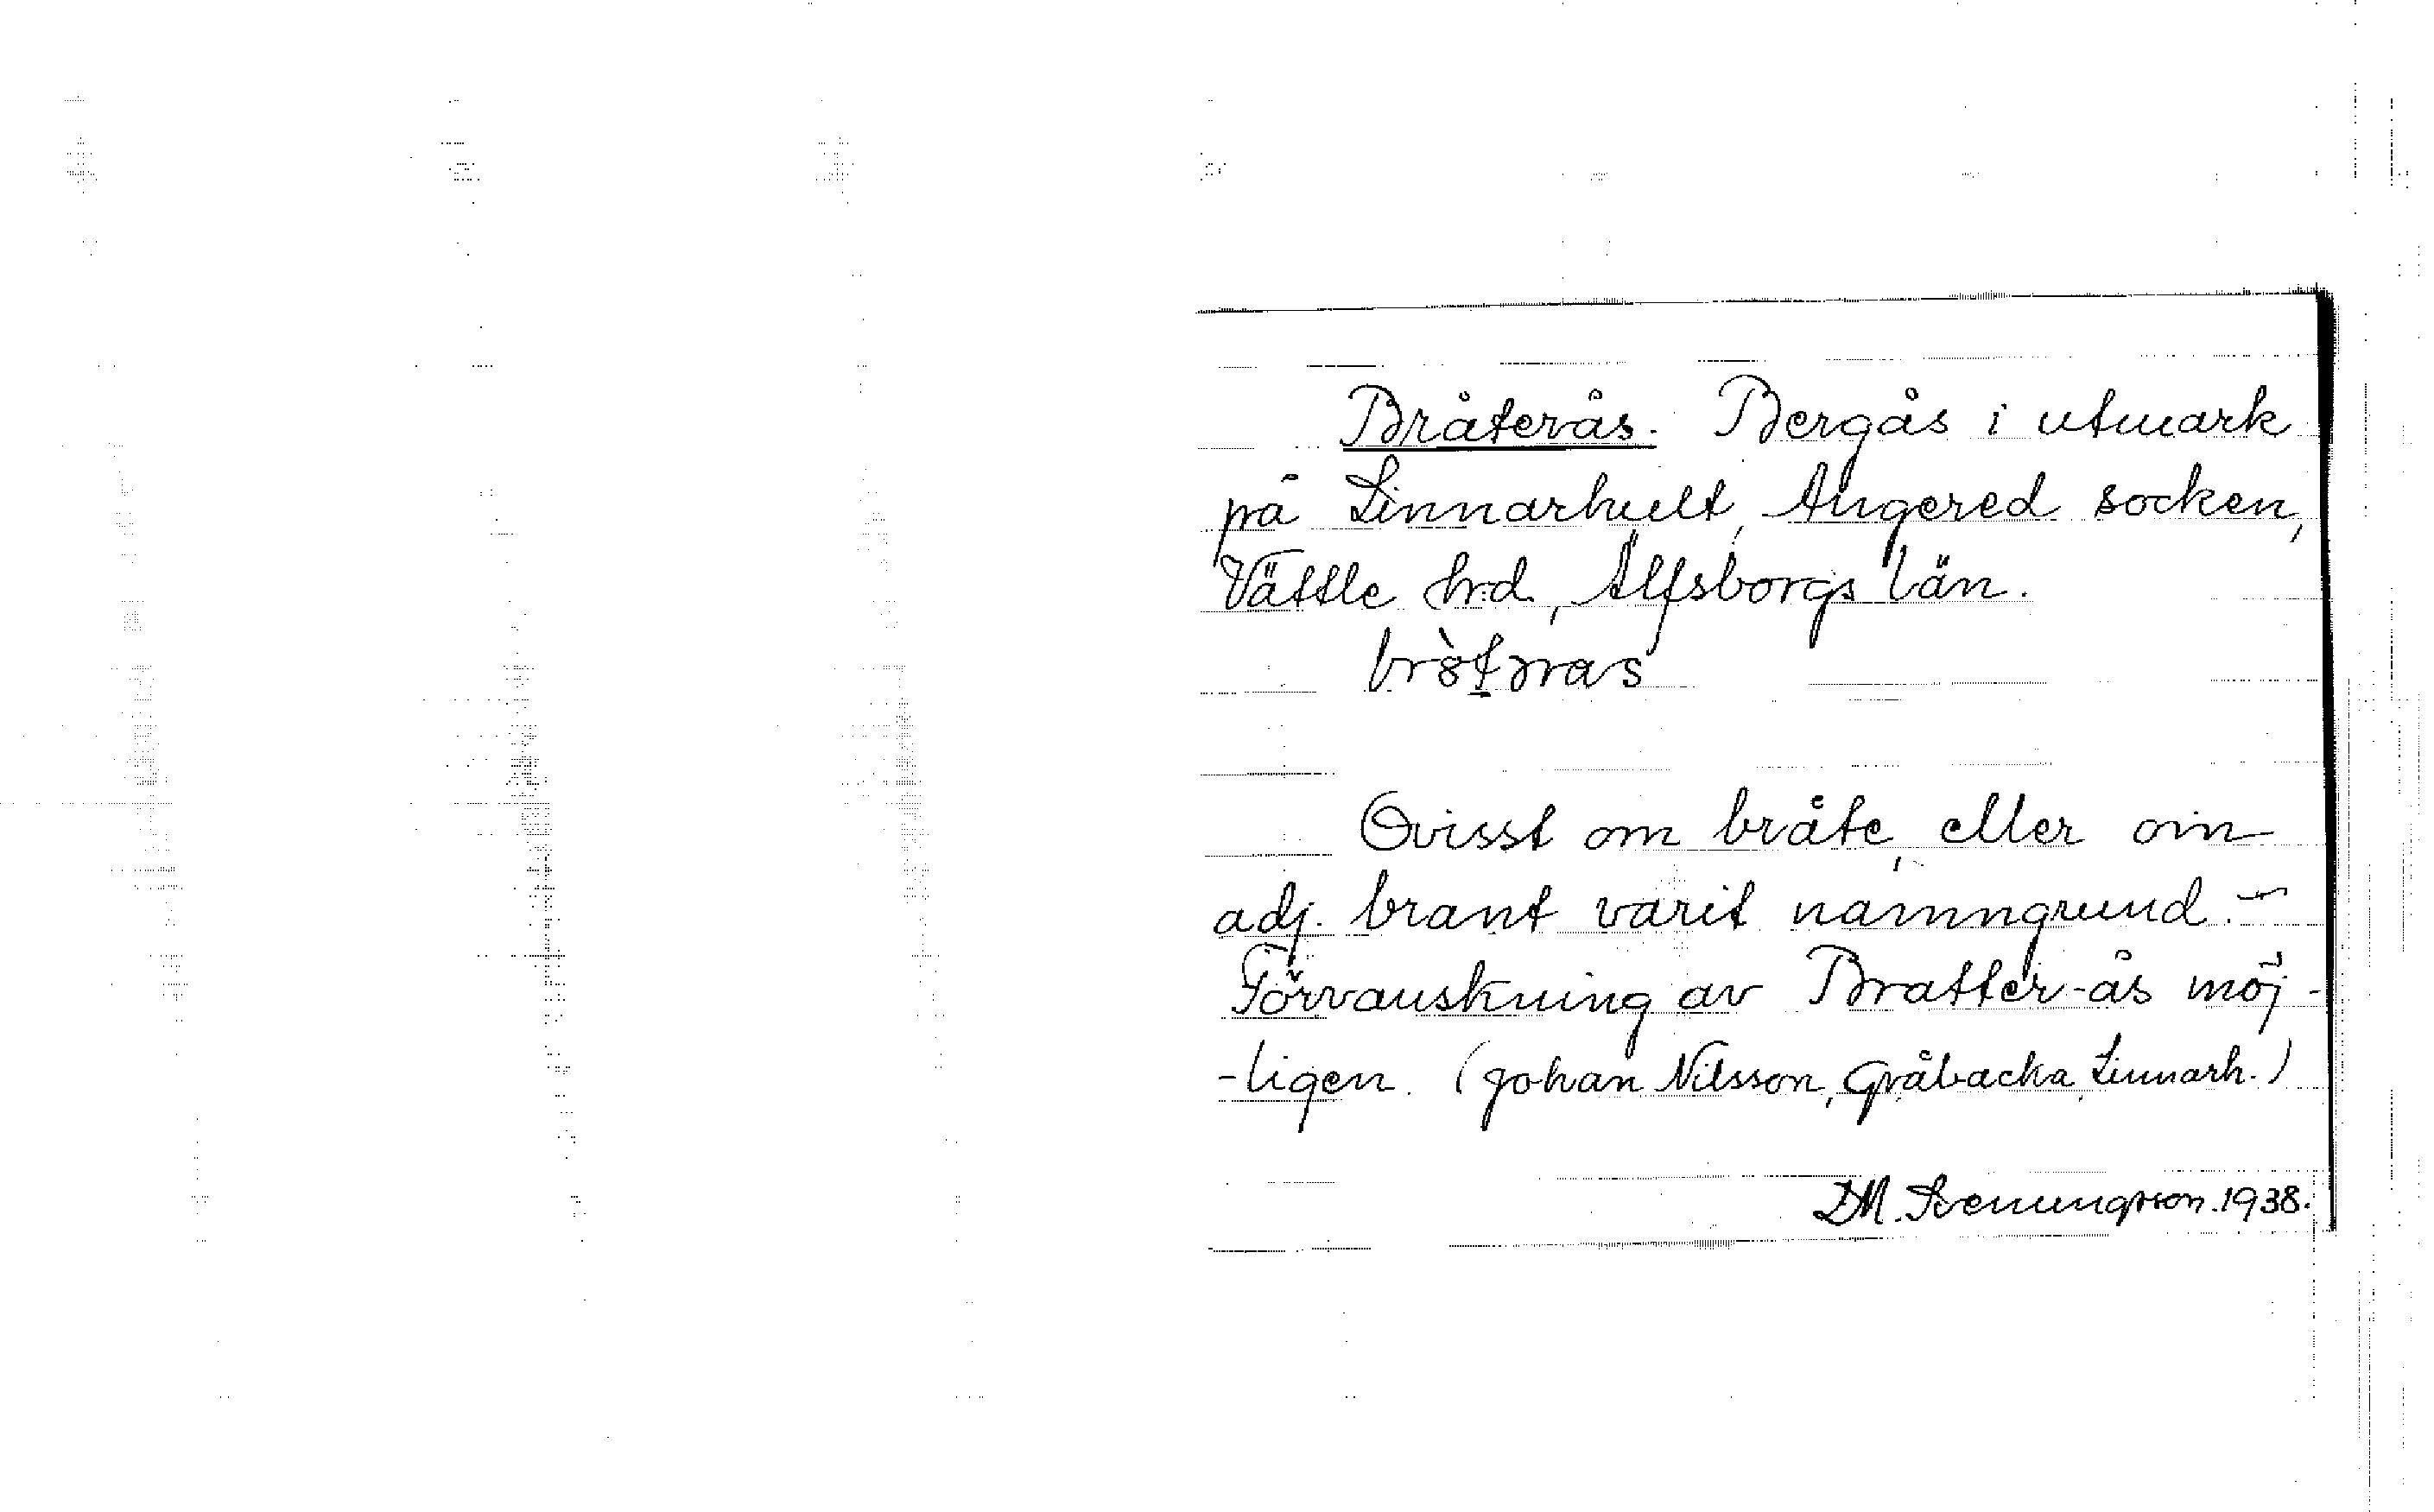 Bråterås. Bergås i utmark
på Linnarhult, Angered socken,
Vättle hrd, Älfsborgs län.
Ovisst om bråte, eller om
adj. brant varit namngrund. –
Förvanskning av Bratter-ås möj-
-ligen. (Johan Nilsson, Gråbacka, Linnarh.)
D.M. Svenungsson. 1938.